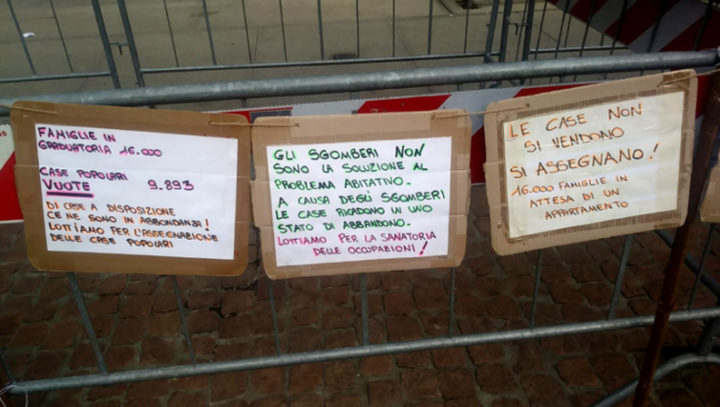 FAMIGLIE IN
GRADUATORIA 16.000
CASE POPOLARI
VUOTE 9.893
DI CASE A DISPOSIZIONE
CE NE SONO IN ABBONDANZA!
LOTTIAMO PER L'ASSEGNAZIONE
DELLE CASE POPOLARI
GLI SGOMBERI NON
SONO LA SOLUZIONE AL
PROBLEMA ABITATIVO.
A CAUSA DEGLI SGOMBERI
LE CASE RICADONO IN UNO
STATO DI ABBANDONO.
LOTTIAMO PER LA SANATORIA
DELLE OCCUPAZIONI!
LE CASE NON
SI VENDONO
SI ASSEGNANO!
16.000 FAMIGLIE IN
ATTESA DI UN
APPARTAMENTO